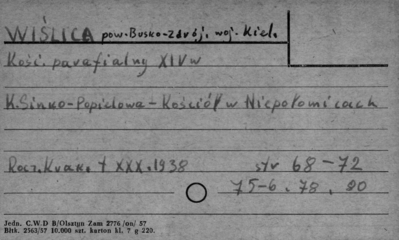 WIŚLICA pow. Busko-Zdrój, woj. Kiel.
Kość. parafialny XIV w
K. Sinko-Popielowa - Kościół w Niepołomicach
Rocz. Krak. t XXX, 1938 str 68-72
75-6, 78, 90
Jedn. C.W.D B/Olsztyn Zam 2776 /on/ 57
Błtk. 2563/57 10.000 szt. karton kl. 7 g 220.